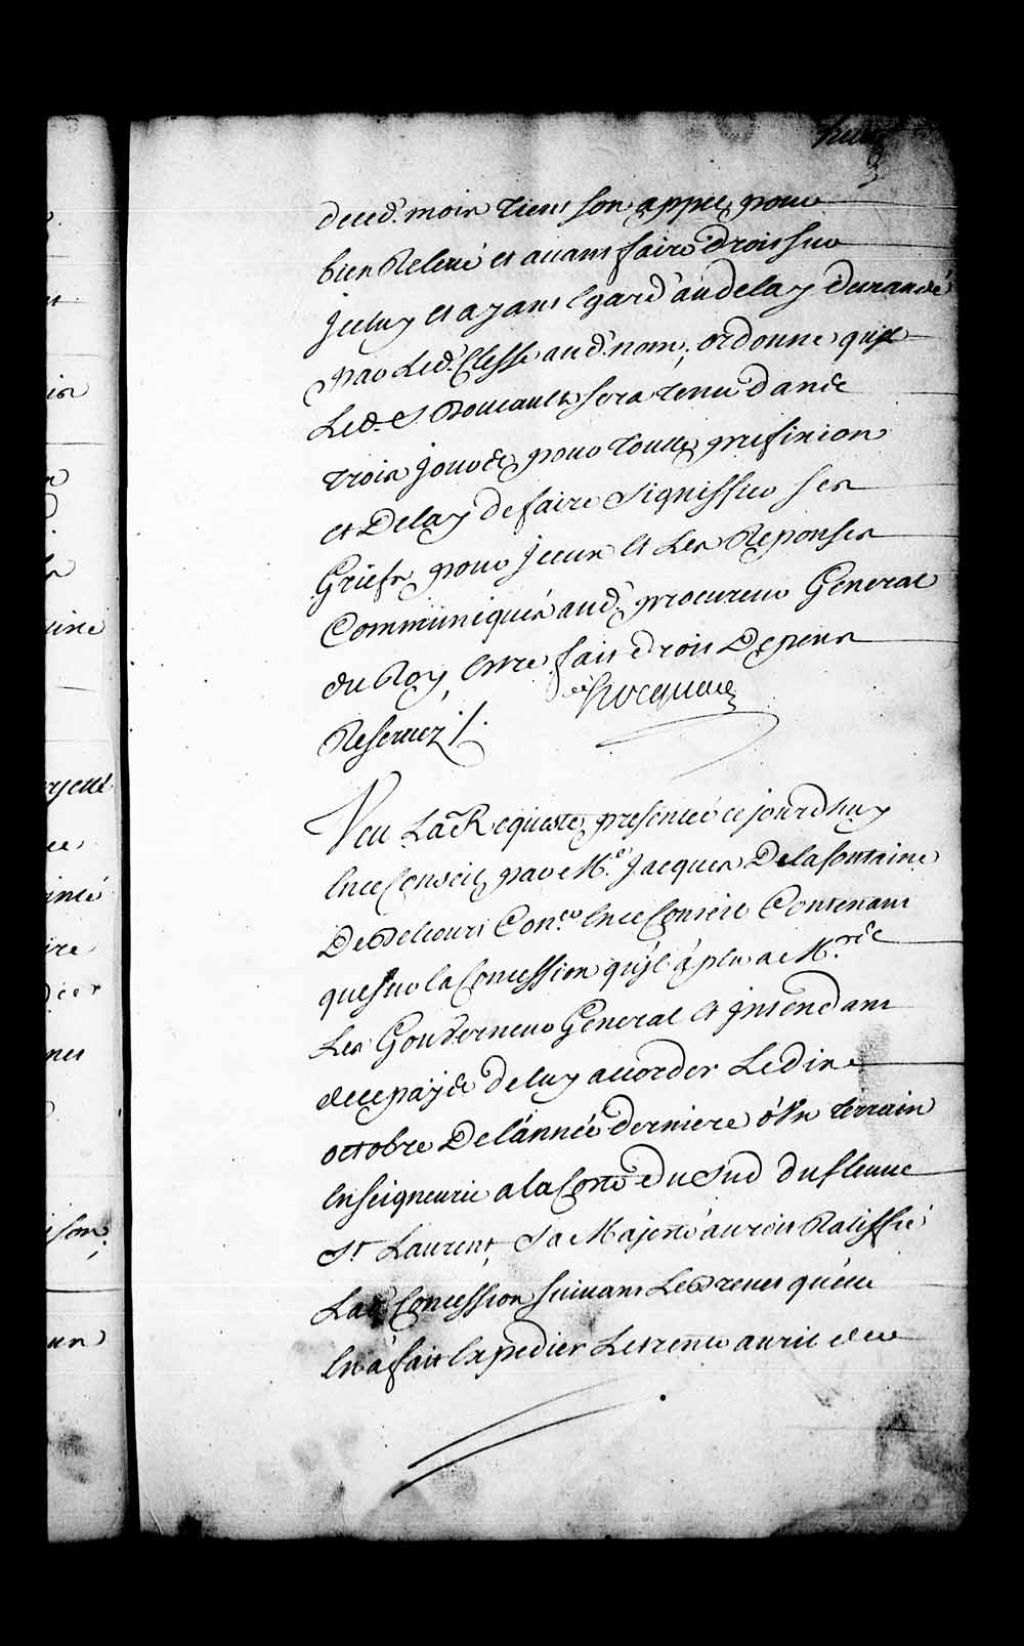 huit
deced. mois tient son appel pour
bien Relevé et avant faire droit sur
Jceluy et ayant Egard au delay demandé
par Led. Clesse aud. nom, ordonne que
Led. S. Boucault sera tenu dans
trois jours pour toutte prefixion
et Delay de faire signiffier ses
Griefs pour Jceux et Les Reponses
Communiqués aud. procureur General
du Roy, Estre fait droit Depens
Reservez ./.
Hocquart
Veu La Requeste presentée cejourdhuy
Ence Conseil par Me. Jacques Delafontaine
De Belcour Coner. Ence Conseil Contenant
que sur la Concession qu'jl à plu a Mrs
Les Gouverneur General et jntendant
decepays de luy accorder Le dix
octobre De l'année derniere d'Un terrain
En seigneurie a la Coste du Sud du fleuve
St. Laurent, Sa Majesté auroit Ratiffié
Lad. Concession suivant Le Brevet qu'elle
En à fait Expedier Le trente avril der